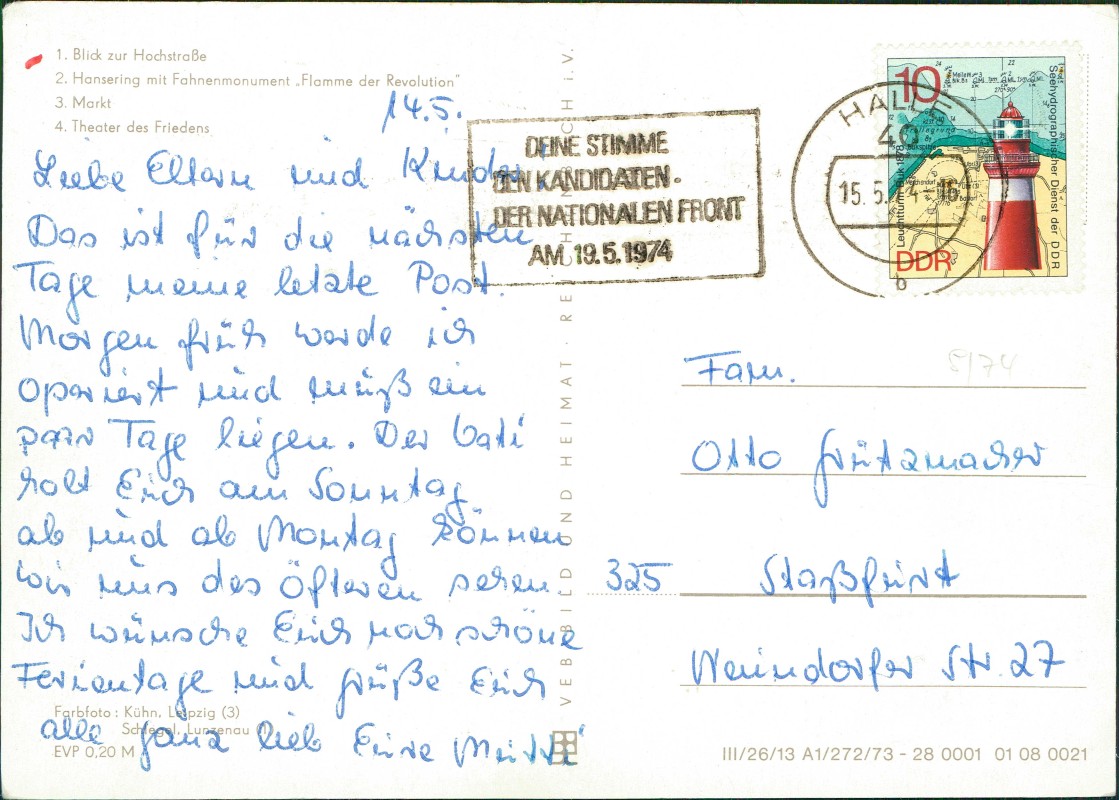 1. Blick zur Hochstraße
2. Hansering mit Fahnenmonument „Flamme der Revolution"
3. Markt
4. Theater des Friedens
14.5.
Liebe Eltern und Kinder!
Das ist für die nächsten
Tage meine letzte Post.
Morgen früh werde ich
operiert und muß ein
paar Tage liegen. Der Vati
holt Euch am Sonntag
ab und ab Montag können
wir uns des Öfteren sehen.
Ich wünsche Euch noch schöne
Ferientage und grüße Euch
alle ganz lieb Eure Mutti
Farbfoto: Kühn, Leipzig (3)
Schlegel, Lunzenau (1)
EVP 0,20 M
VEB BILD UND HEIMAT · REICHENBACH i.V.
DEINE STIMME
DEN KANDIDATEN
DER NATIONALEN FRONT
AM 19.5.1974
HALLE
40
15.5.74
b
10
Seehydrographischer Dienst der DDR
Leuchtturm Buk 1878
DDR
5/74
Fam.
Otto Grützmacher
325 Staßfurt
Weindorfer Str. 27
III/26/13 A1/272/73 - 28 0001 01 08 0021